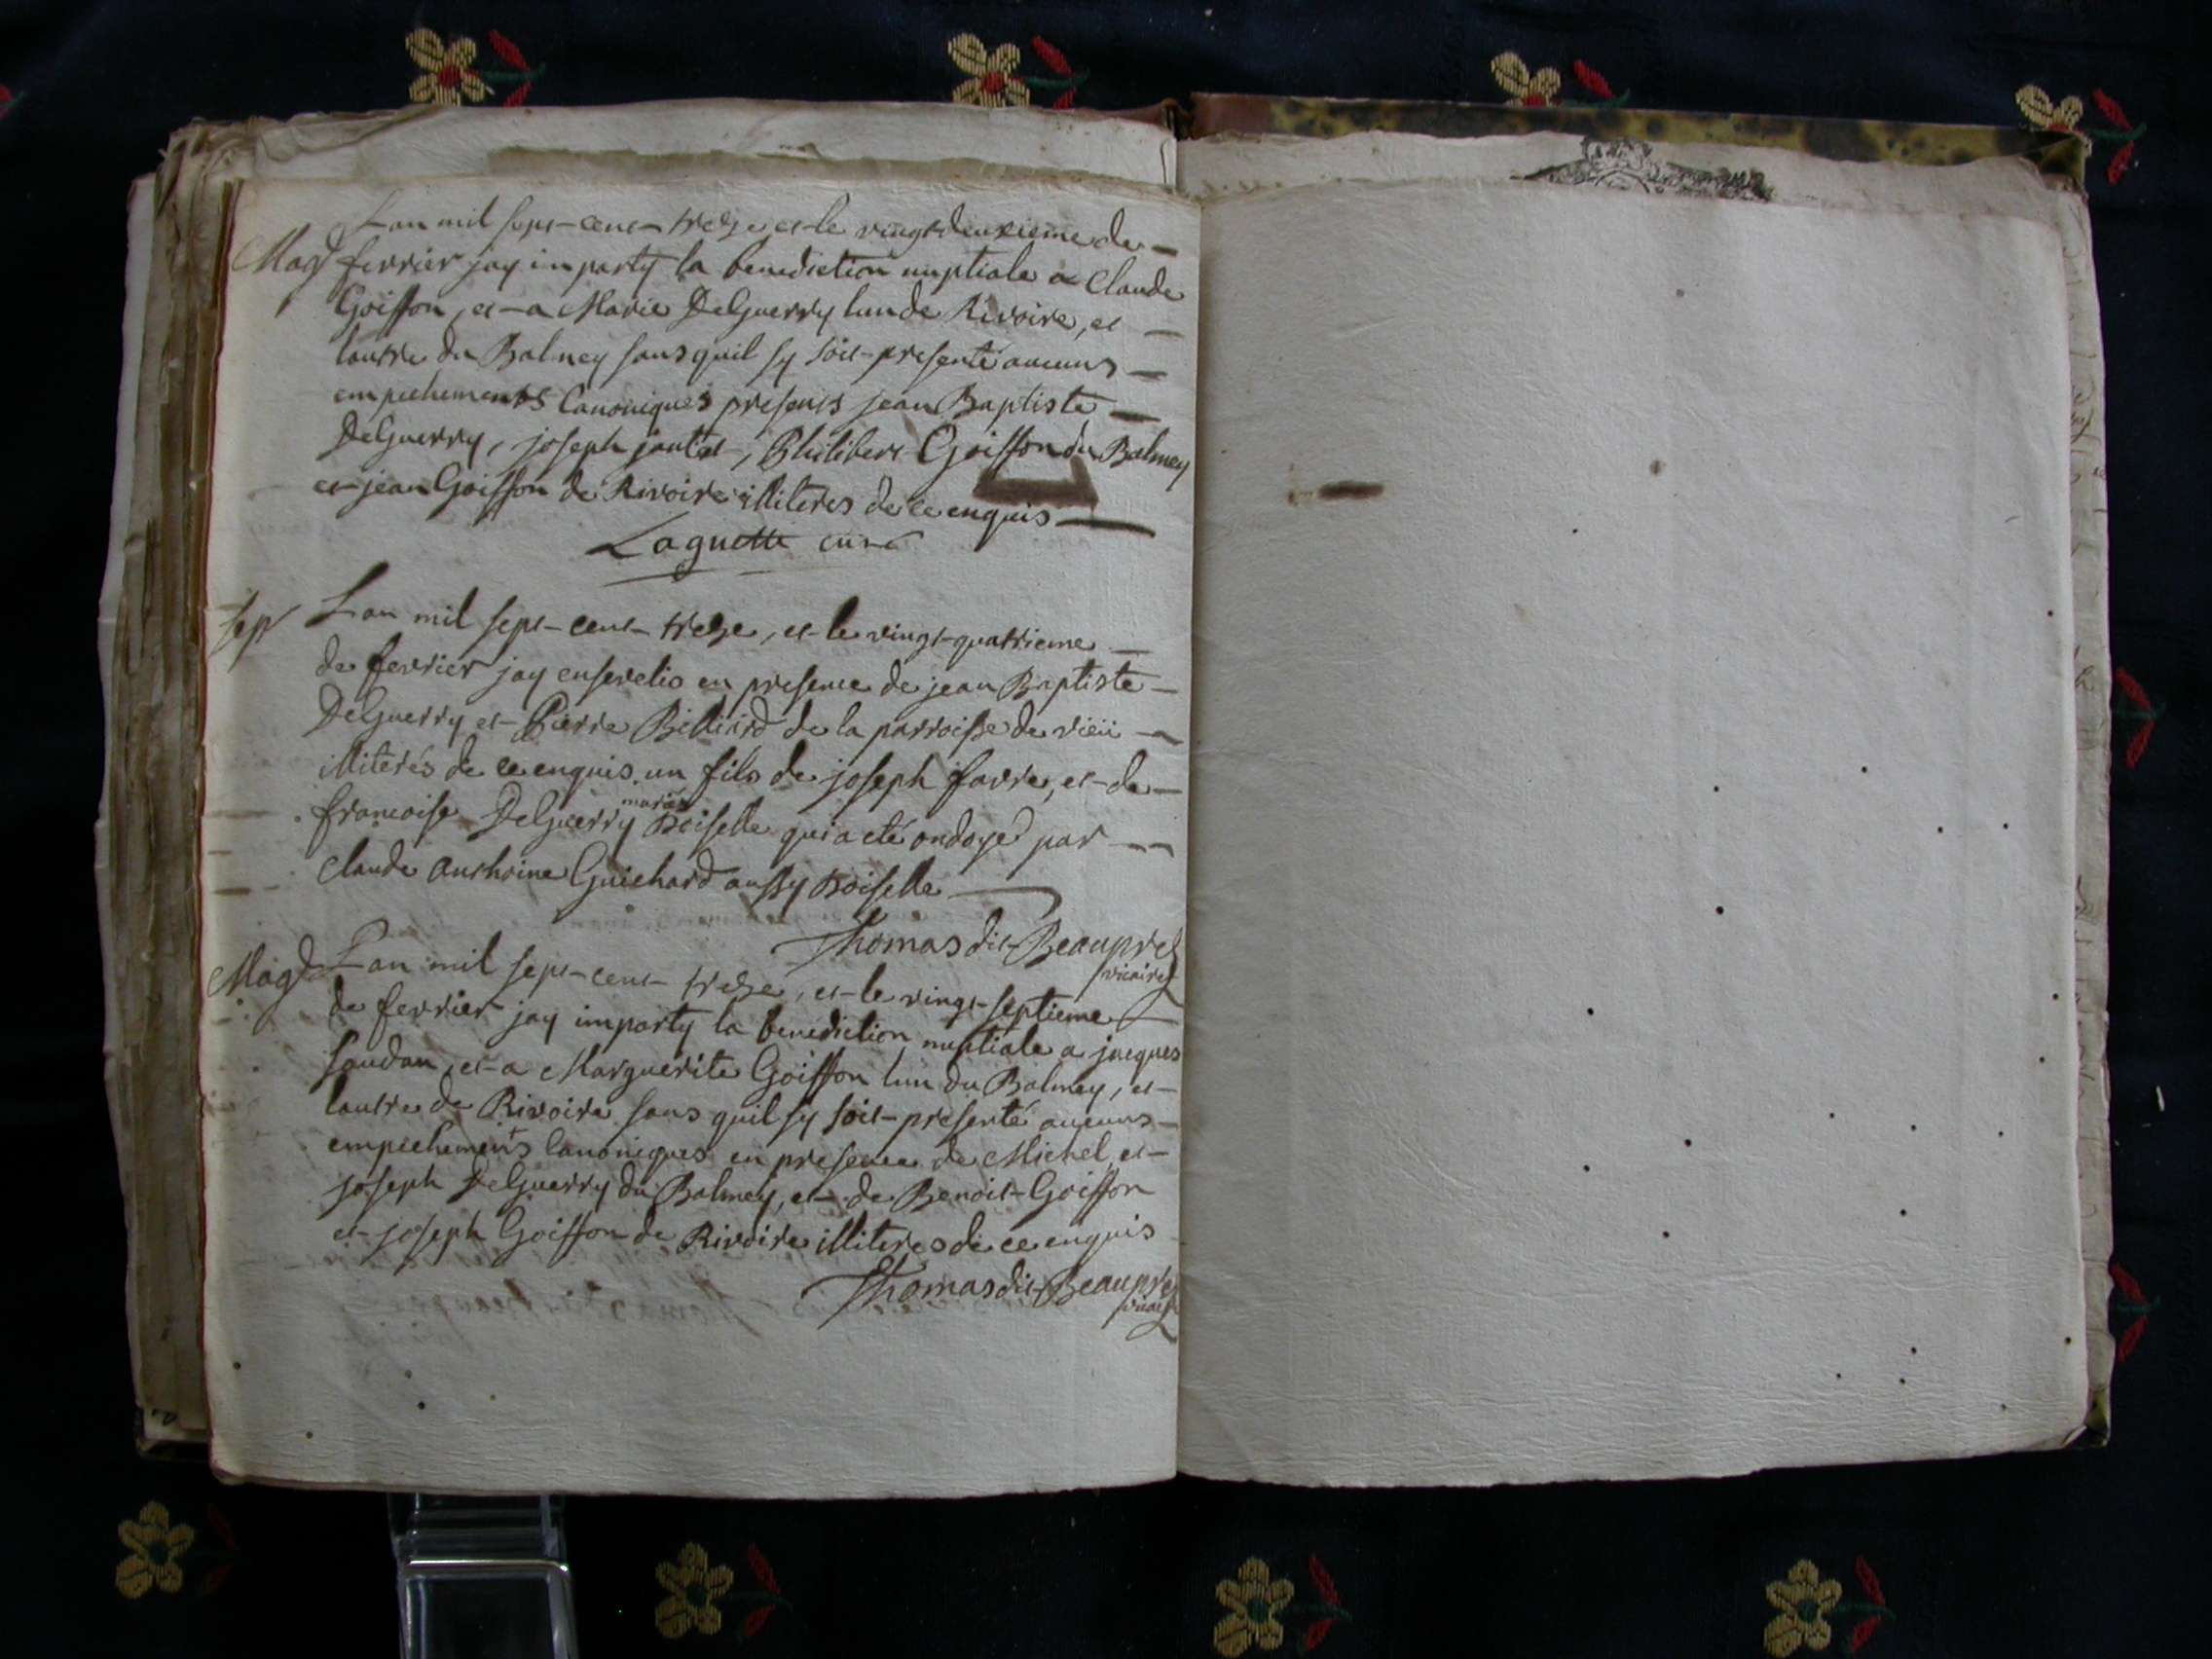 Lan mil sept-cent-treize et-le vingt-deuxieme de
Mag
ferrier jay imparty la benediction nuptiale a Claude
Goiffon, et-a Marie DeGuerry lun de Rivoire, et
lautre du Balmey sans quil sy soit-presenté aucuns
empechements Canoniques presents jean Baptiste
DeGuerry, joseph, Philibert Goiffon du Balmey
et-jean Goiffon de Rivoire illiteres de ce enquis
Laguette curé
sep
Lan mil sept-cent-treize, et-le vingt-quatrieme
de fevrier jay ensevelis en presence de jean Baptiste
DeGuerry et-Pierre Billiard de la parroisse de vieu
illiterés de ce enquis un fils de joseph favre, et-de
francoise DeGuerry mariés Boiselle qui a eté ondoyé par
Claude Anthoine Guichard aussy Boiselle
Thomas dit-Beaupré
vicaire
Mag
Lan mil sept-cent-treize, et-le vingt-septieme
de fevrier jay imparty la benediction nuptiale a jacques
et-a Marguerite Goiffon lun du Balmey, et-
lautre de Rivoire sans quil sy soit-presenté aucuns
empechements Canoniques en presence de Michel et-
joseph DeGuerry du Balmey, et-de Benoit-Goiffon
et-joseph Goiffon de Rivoire illiteres de ce enquis
Thomas dit-Beaupré
vicaire